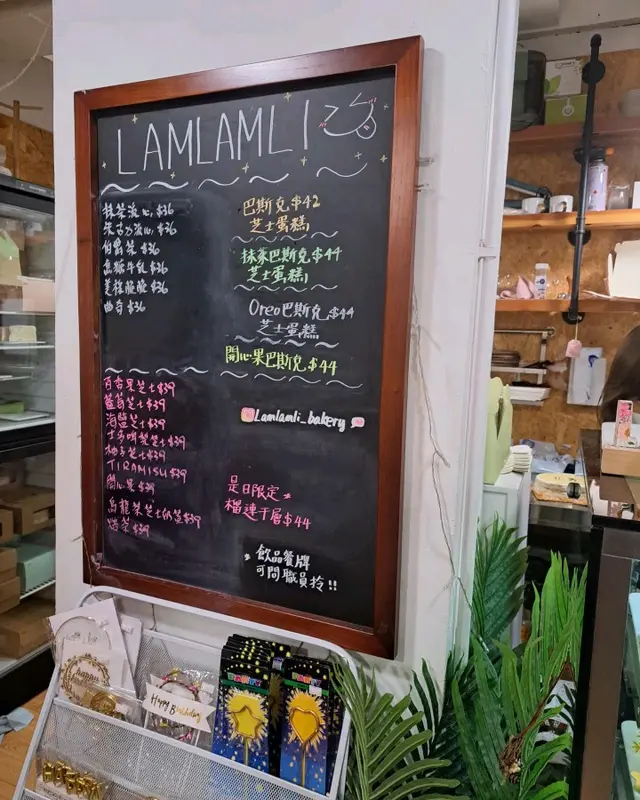 LAMLAMLI
抹茶流心 $36
朱古力流心 $36
伯爵茶 $36
黑糖牛乳 $36
曲奇 $36
百香果芝士$39
藍莓芝士$39
海鹽芝士$39
士多啤梨芝士$39
柚子芝士$39
TIRAMISU $39
開心果 $39
烏龍茶芝士奶蓋$39
$39
巴斯克 $42
芝士蛋糕
抹茶巴斯克 $44
芝士蛋糕
Oreo巴斯克 $44
芝士蛋糕
開心果巴斯克 $44
Lamlamli_bakery
是日限定
榴槤千層$44
飲品餐牌
可問職員拎!!
Happy Birthday
PARTY